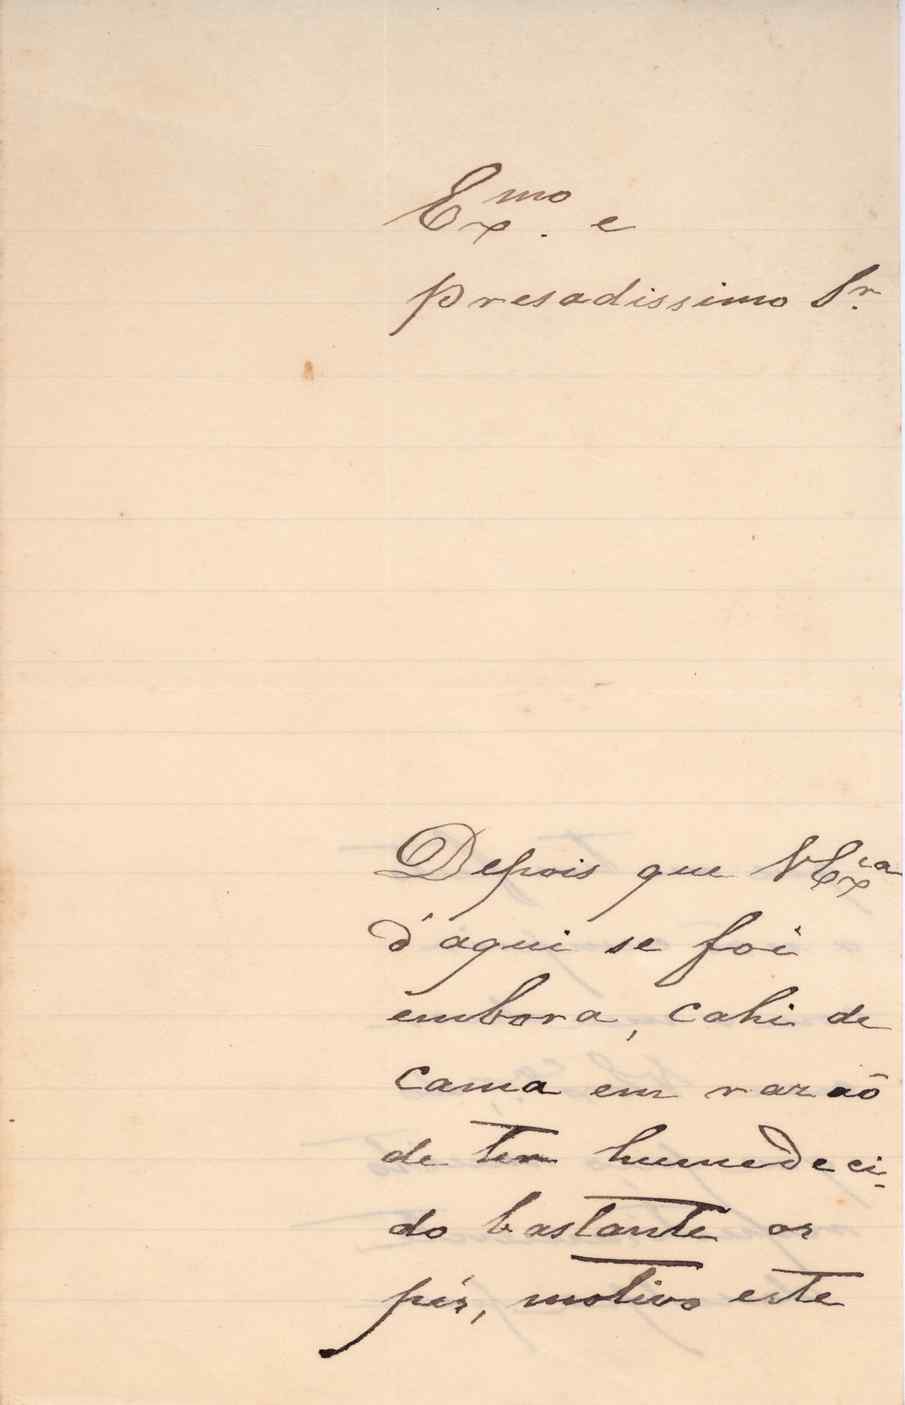 Exmo. e
presadissimo Sr.
Depois que V Excia
d'aqui se foi
embora, cahi de
cama em razaõ
de ter humedeci-
do bastante os
pés, motivo este